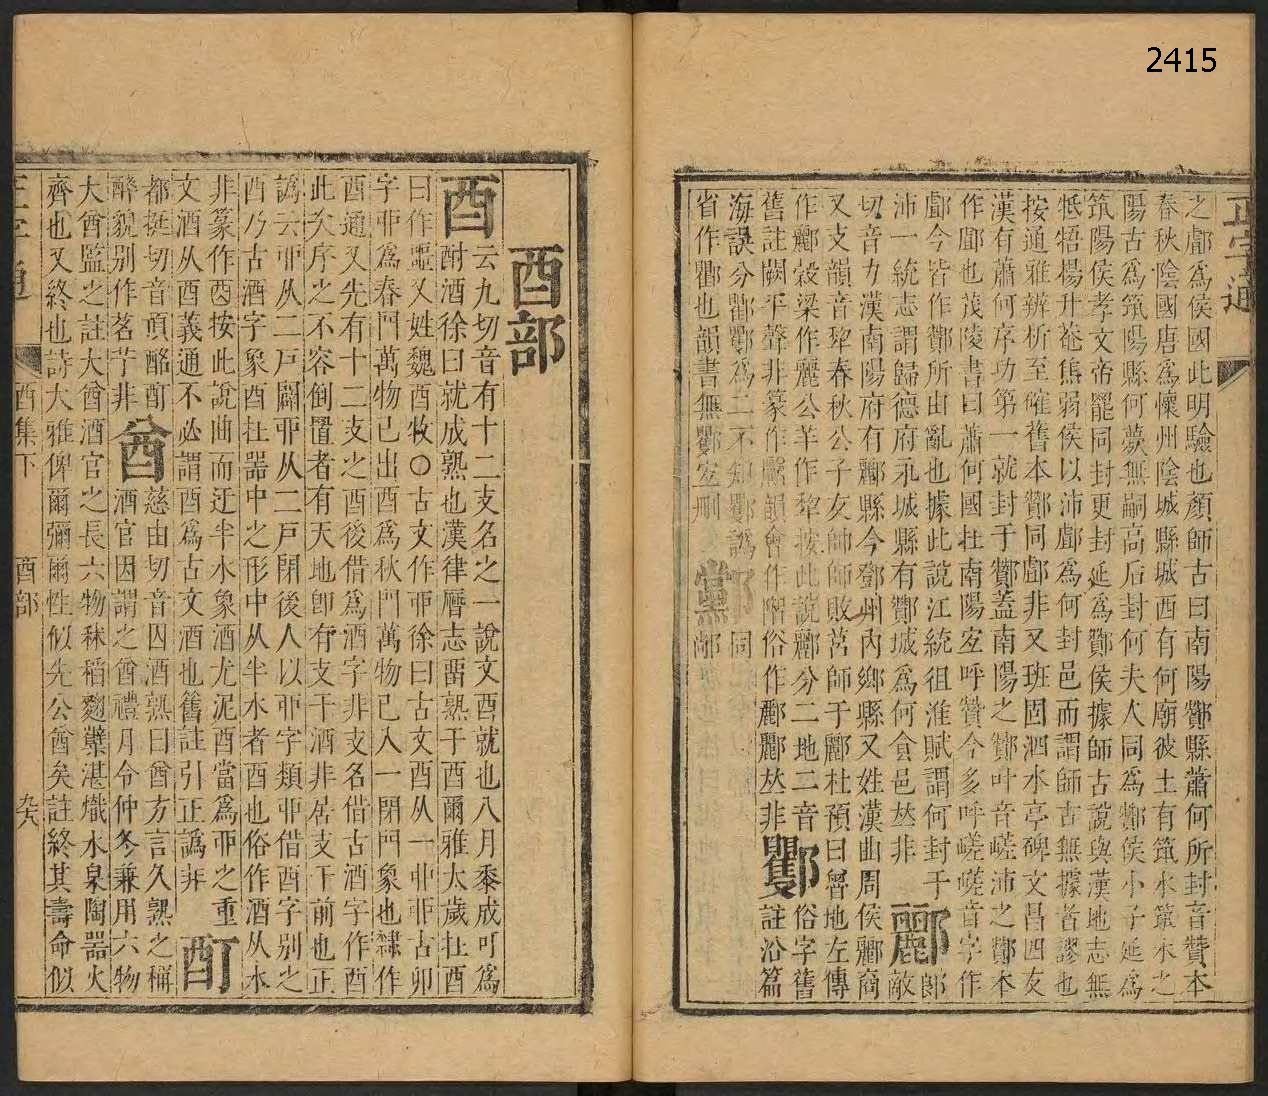 2415
正字通
之酇為侯國此明驗也顏師古曰南陽酇縣蕭何所封音贊本
春秋陰國唐為懷州陰城縣城西有何廟彼土有筑水筑水之
陽古為筑陽縣何薨無嗣高后封何夫人同為酇侯小子延為
筑陽侯孝文帝罷同封更封延為酇侯據師古說與漢地志無
牴牾楊升菴焦弱侯以沛酇為何封邑而謂師古無據者謬也
按通雅辨析至確舊本酇同酇非又班固泗水亭碑文昌四友
漢有蕭何序功第一就封于酇蓋南陽之酇叶音嵯沛之酇本
作酇也茂陵書曰蕭何國在南陽宜呼贊今多呼嵯嵯音字作
酇今皆作酇所由亂也據此說江統徂淮賦謂何封于
沛一統志謂歸德府永城縣有酇城為何食邑𠀤非
酈
郎敵切音力漢南陽府有酈縣今鄧州內鄉縣又姓漢曲周侯酈商
又支韻音犂春秋公子友帥師敗莒師于酈杜預曰魯地左傳
作酈穀梁作麗公羊作犂按此說酈分二地二音
舊註闕平聲非篆作酈韻會作酈俗作酈酈𠀤非
俗字舊註沿篇
海誤分
為二不知
譌
同
省作酇也韻書無
宜刪
酉部
酉
云九切音有十二支名之一說文酉就也八月黍成可為
酎酒徐曰就成熟也漢律厤志畱熟于酉爾雅太歲在酉
曰作噩又姓魏酉牧〇古文作丣徐曰古文酉从一丣丣古卯
字丣為春門萬物已出酉為秋門萬物已入一閉門象也隸作
酉通又先有十二支之酉後借為酒字非支名借古酒字作酉
此次序之不容倒置者有天地卽有支干酒非居支干前也正
譌云丣从二戸闢丣从二戸閉後人以丣字類丣借酉字別之
酉乃古酒字象酉在器中之形中从半水者酉也俗作酒从水
非篆作酉按此說曲而迂半水象酒尤泥酉當為丣之重
文酒从酉義通不必謂酉為古文酒也舊註引正譌𠀤
酊
都挺切音頂酩酊
醉貌別作茗艼非
酋
慈由切音囚酒熟曰酋方言久熟之稱
酒官因謂之酋禮月令仲冬兼用六物
大酋監之註大酋酒官之長六物秫稻麴櫱湛熾水泉陶器火
齊也又終也詩大雅俾爾彌爾性似先公酋矣註終其壽命似
正字通
酉集下
酉部
九六